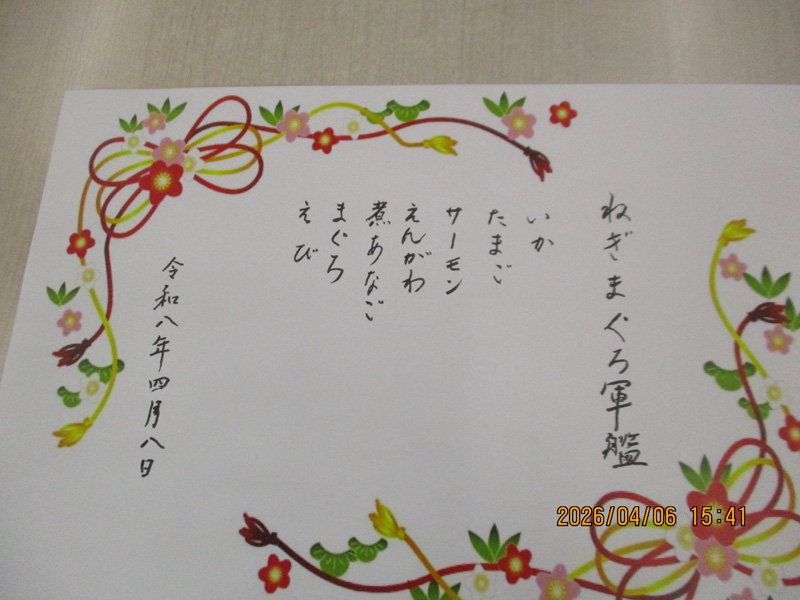 ねぎまぐろ軍艦
いか
たまご
サーモン
えんがわ
煮あなご
まぐろ
えび
令和八年四月八日
2026/04/06 15:41